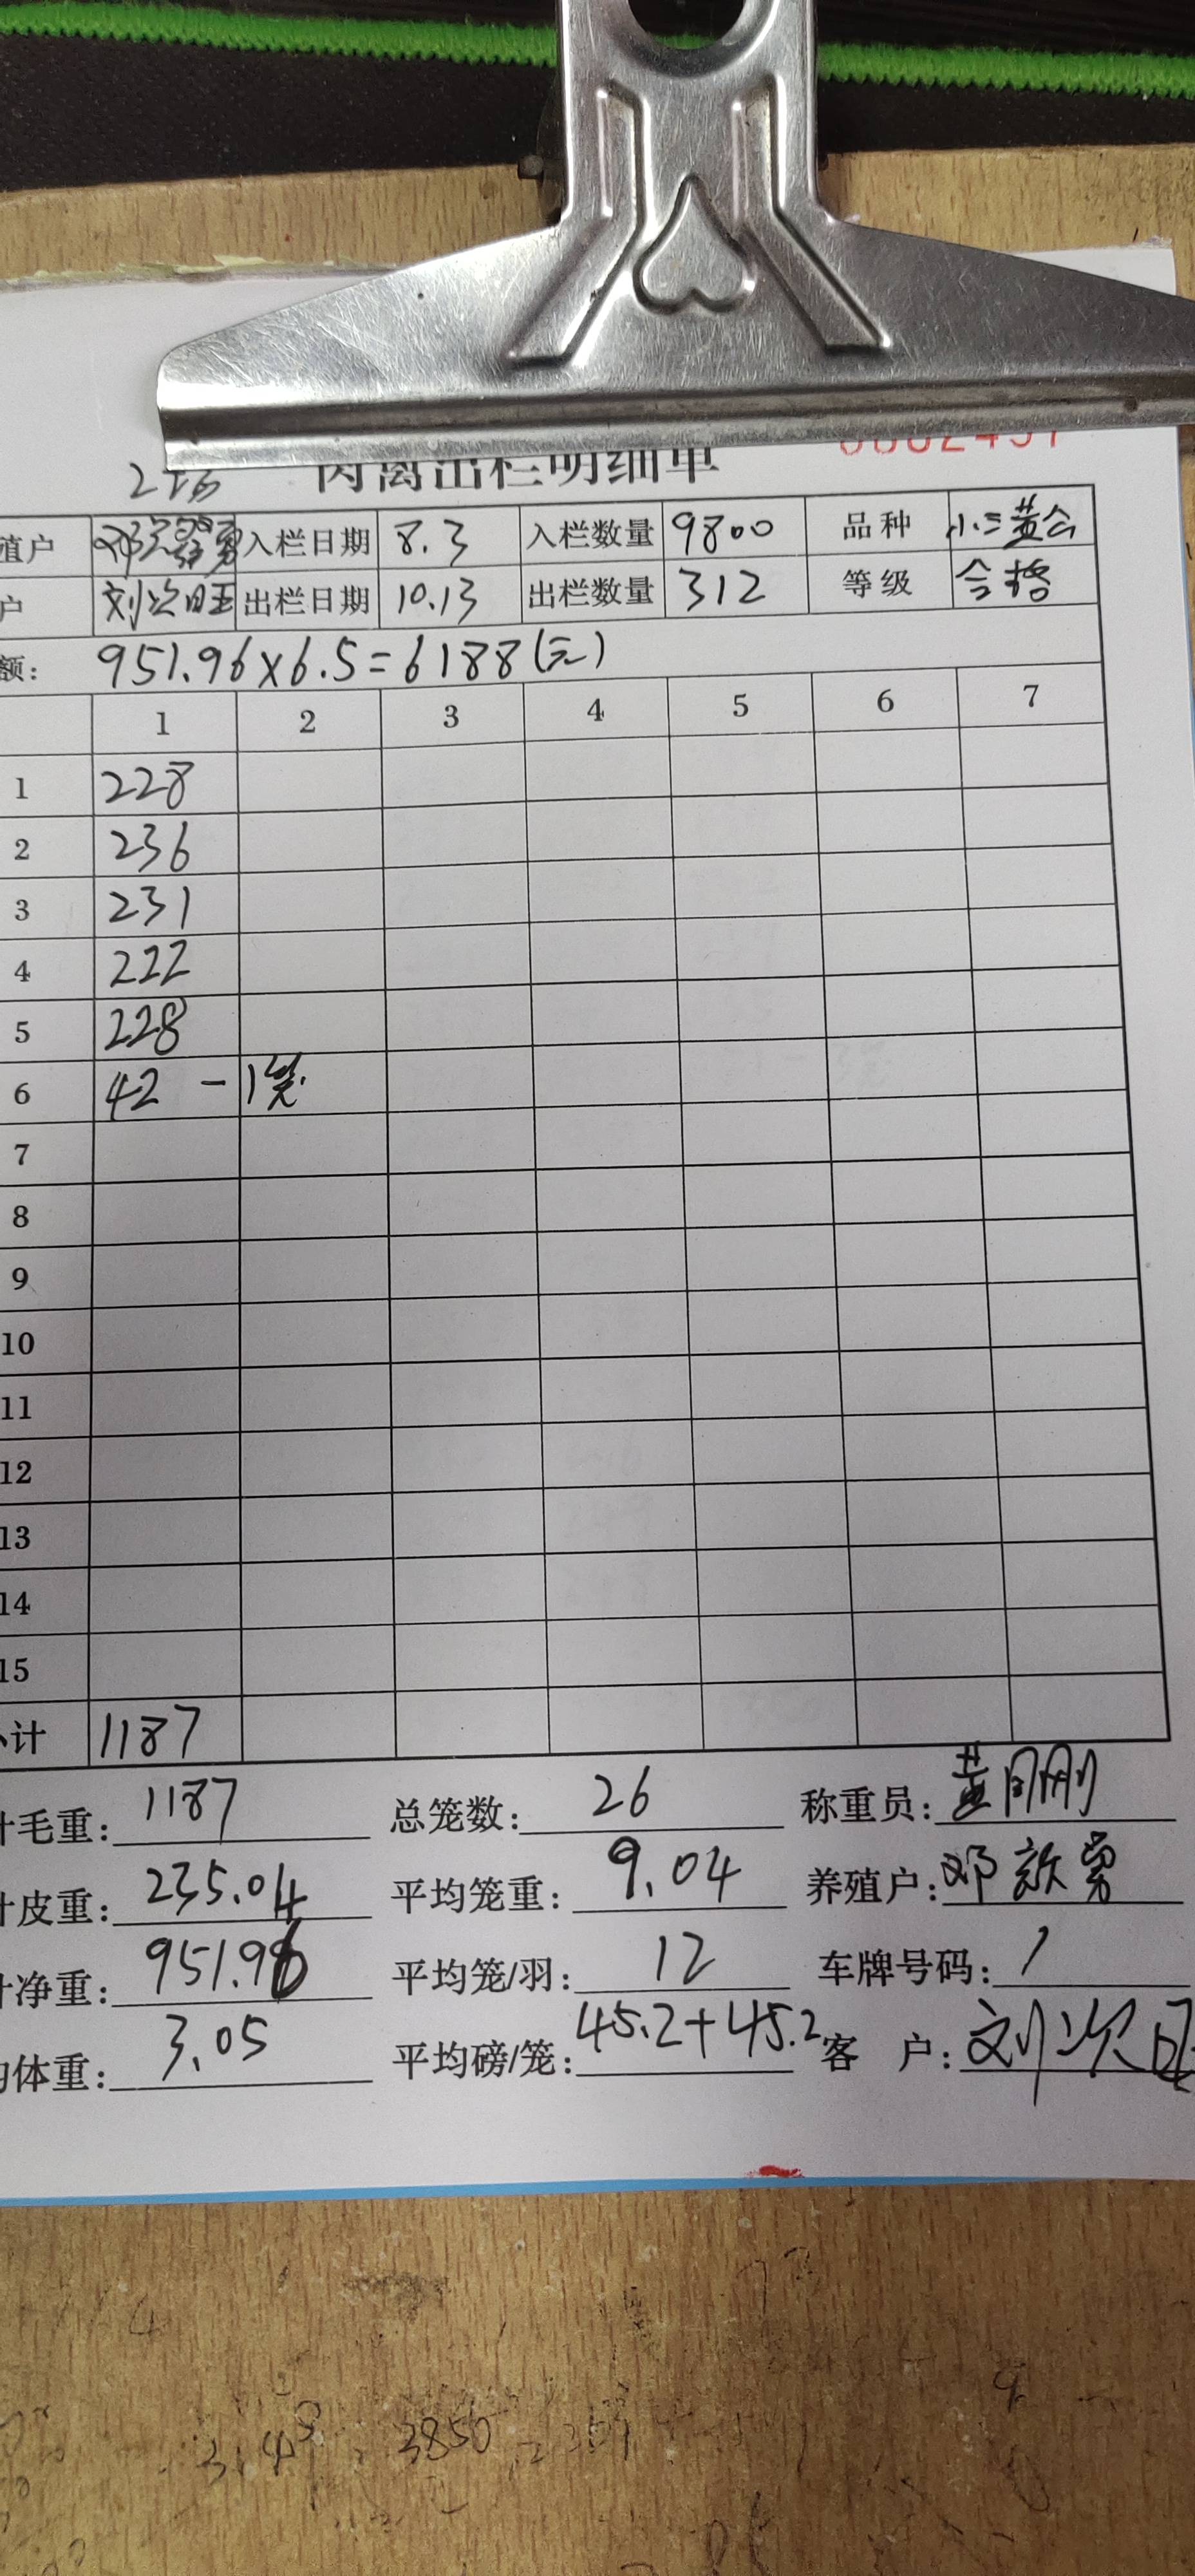 2场 肉禽出栏明细单
殖户 入栏日期 8.3 入栏数量 9800 品种 小三黄公
户 刘次旺 出栏日期 10.13 出栏数量 312 等级 合格
额: 951.96×6.5=6188(元)
1 2 3 4 5 6 7
1 228
2 236
3 231
4 222
5 228
6 42 -1笼
7
8
9
10
11
12
13
14
15
小计 1187
计毛重: 1187 总笼数: 26 称重员: 黄刚
计皮重: 235.04 平均笼重: 9.04 养殖户: 邓新勇
计净重: 951.96 平均笼/羽: 12 车牌号码: /
均体重: 3.05 平均磅/笼: 45.2+45.2 客 户: 刘次旺
3850